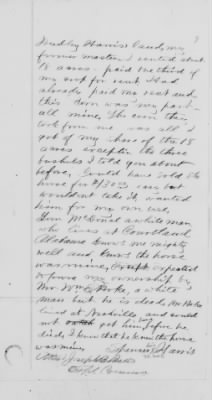 Dudley Harris lands, my
former master. I rented about
18 acres - paid the third of
my crop for rent. Had
already paid the rent and
this corn was my part -
all mine. The corn they
took from me was all I
got of my share of the 18
acres except the three
bushels I told you about
before, Could have sold the
horse for $130.00 but
wouldnt take it, wanted
him for my own use.
McDonal a white man
who lives at Courtland
Alabama knows me mighty
well and knows the horse
was mine, expected
to prove my ownership by
Mr Wm Hoke, a white
man but he is dead, Mr Hoke
lived at Nashville and could
not get him before he
died, I know that he knew the horse
was mine. Harris